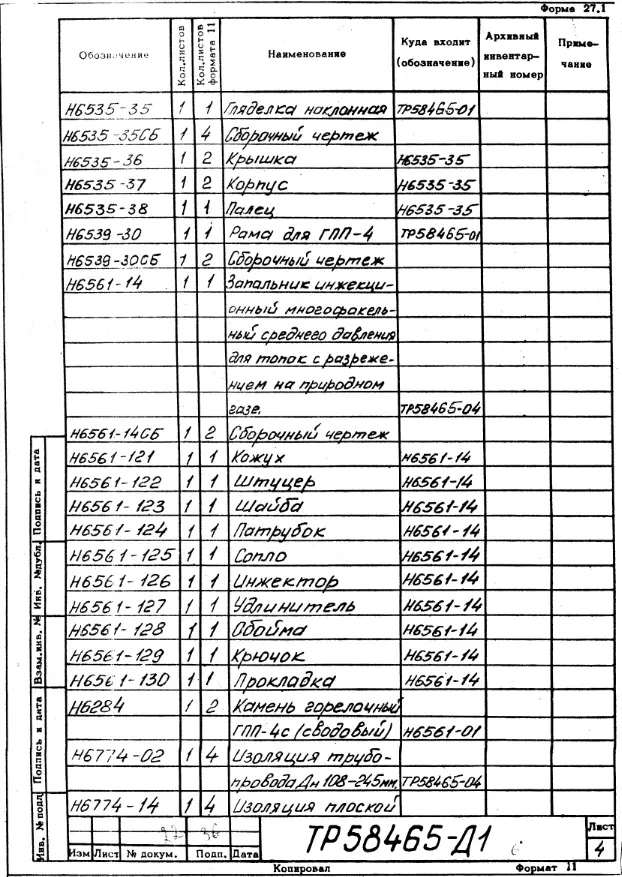 Форма 27.1
Обозначение Кол.листов Кол.листов формата 11 Наименование Куда входит (обозначение) Архивный инвентарный номер Примечание
Н6535-35 1 1 Гляделка наклонная ТР58465-01
Н6535-35СБ 1 4 Сборочный чертеж
Н6535-36 1 2 Крышка Н6535-35
Н6535-37 1 2 Корпус Н6535-35
Н6535-38 1 1 Палец Н6535-35
Н6539-30 1 1 Рама для ГПП-4 ТР58465-01
Н6539-30СБ 1 2 Сборочный чертеж
Н6561-14 1 1 Запальник инжекци-
онный многофакель-
ный среднего давления
для топок с разреже-
нием на природном
газе. ТР58465-04
Н6561-14СБ 1 2 Сборочный чертеж
Н6561-121 1 1 Кожух Н6561-14
Н6561-122 1 1 Штуцер Н6561-14
Н6561-123 1 1 Шайба Н6561-14
Н6561-124 1 1 Патрубок Н6561-14
Н6561-125 1 1 Сопло Н6561-14
Н6561-126 1 1 Инжектор Н6561-14
Н6561-127 1 1 Удлинитель Н6561-14
Н6561-128 1 1 Обойма Н6561-14
Н6561-129 1 1 Крючок Н6561-14
Н6561-130 1 1 Прокладка Н6561-14
Н6284 1 2 Камень горелочный
ГПП-4с (сводовый) Н6561-01
Н6774-02 1 4 Изоляция трубо-
провода Дн 108-245мм. ТР58465-04
Н6774-14 1 4 Изоляция плоской
Инв. № подл Подпись и дата Взам.инв. № Инв. №дубл. Подпись и дата
ТР58465-Д1 6
Лист
4
Изм Лист № докум. Подп. Дата
Копировал Формат 11